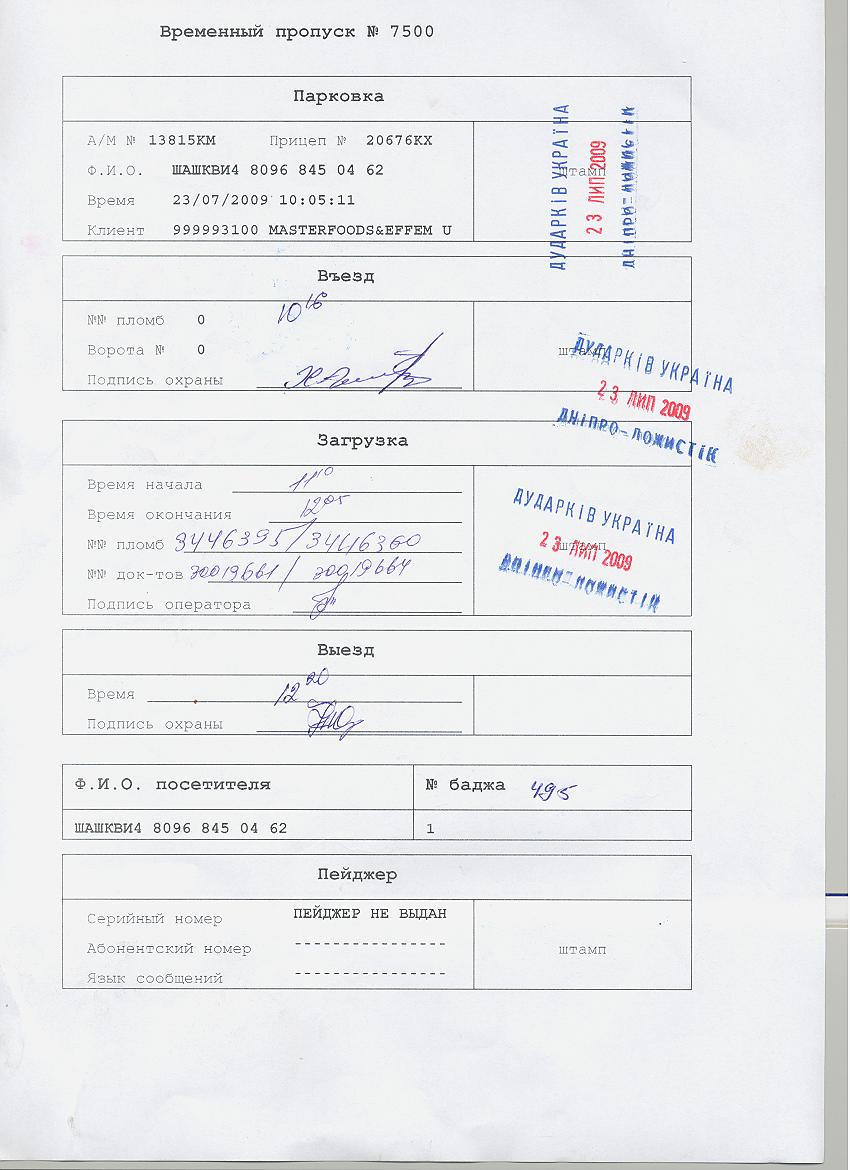 Временный пропуск № 7500
Парковка
А/М № 13815КМ Прицеп № 20676КХ
Ф.И.О. ШАШКВИ4 8096 845 04 62
штамп
Время 23/07/2009 10:05:11
Клиент 999993100 MASTERFOODS&EFFEM U
ДУДАРКІВ УКРАЇНА
23 ЛИП 2009
ДНІПРО-ЛОЖИСТІК
Въезд
10 16
№№ пломб 0
Ворота № 0
штамп
Подпись охраны
ДУДАРКІВ УКРАЇНА
23 ЛИП 2009
ДНІПРО-ЛОЖИСТІК
Загрузка
Время начала 11 10
Время окончания 12 05
№№ пломб 3446395/3446360
штамп
№№ док-тов 70019661 / 70019664
Подпись оператора
ДУДАРКІВ УКРАЇНА
23 ЛИП 2009
ДНІПРО-ЛОЖИСТІК
Выезд
Время 12 20
Подпись охраны
Ф.И.О. посетителя № баджа 495
ШАШКВИ4 8096 845 04 62 1
Пейджер
Серийный номер ПЕЙДЖЕР НЕ ВЫДАН
Абонентский номер ---------------
штамп
Язык сообщений ---------------